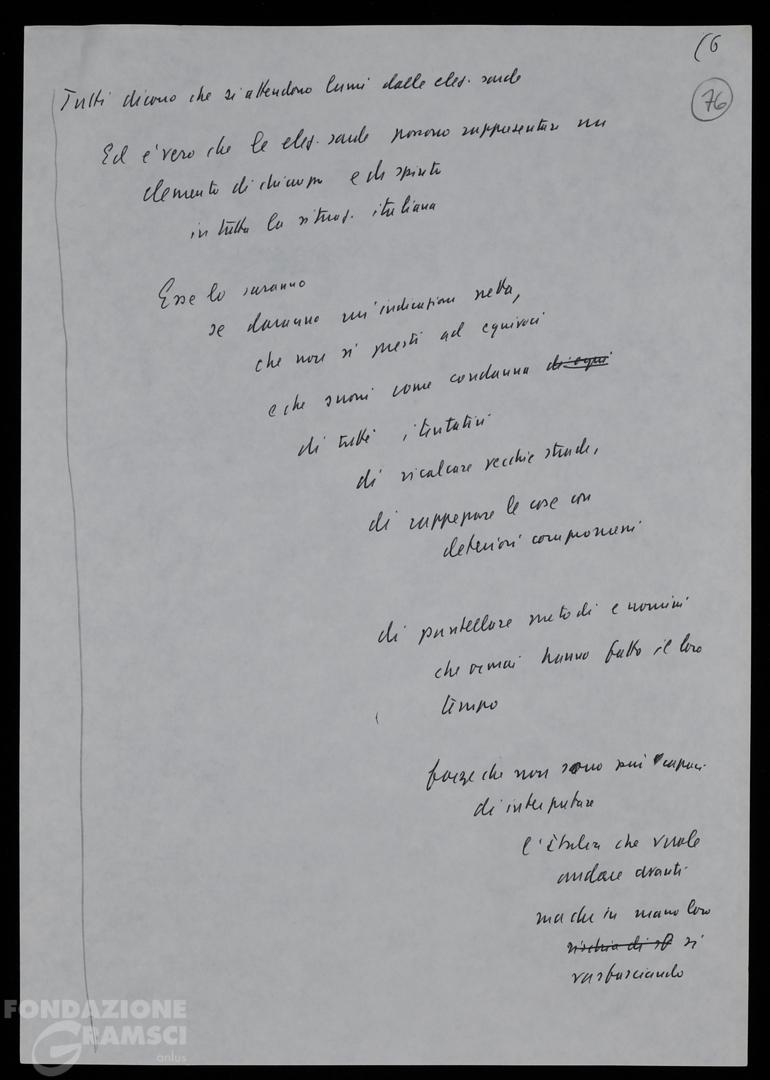 (6
76
Tutti dicono che si attendono lumi dalle elez. sarde
Ed è vero che le elez. sarde possono rappresentare un
elemento di chiarezza e di spinta
in tutta la situaz. italiana
Esse lo saranno
se daranno un'indicazione netta,
che non si presti ad equivoci
e che suoni come condanna di equi
di tutti i tentativi
di ricalcare vecchie strade,
di rappezzare le cose con
deteriori compromessi
di puntellare metodi e uomini
che ormai hanno fatto il loro
tempo
forze che non sono più capaci
di interpretare
l'Italia che vuole
andare avanti
ma che in mano loro
rischia di sf si
va sfasciando
FONDAZIONE
GRAMSCI
onlus